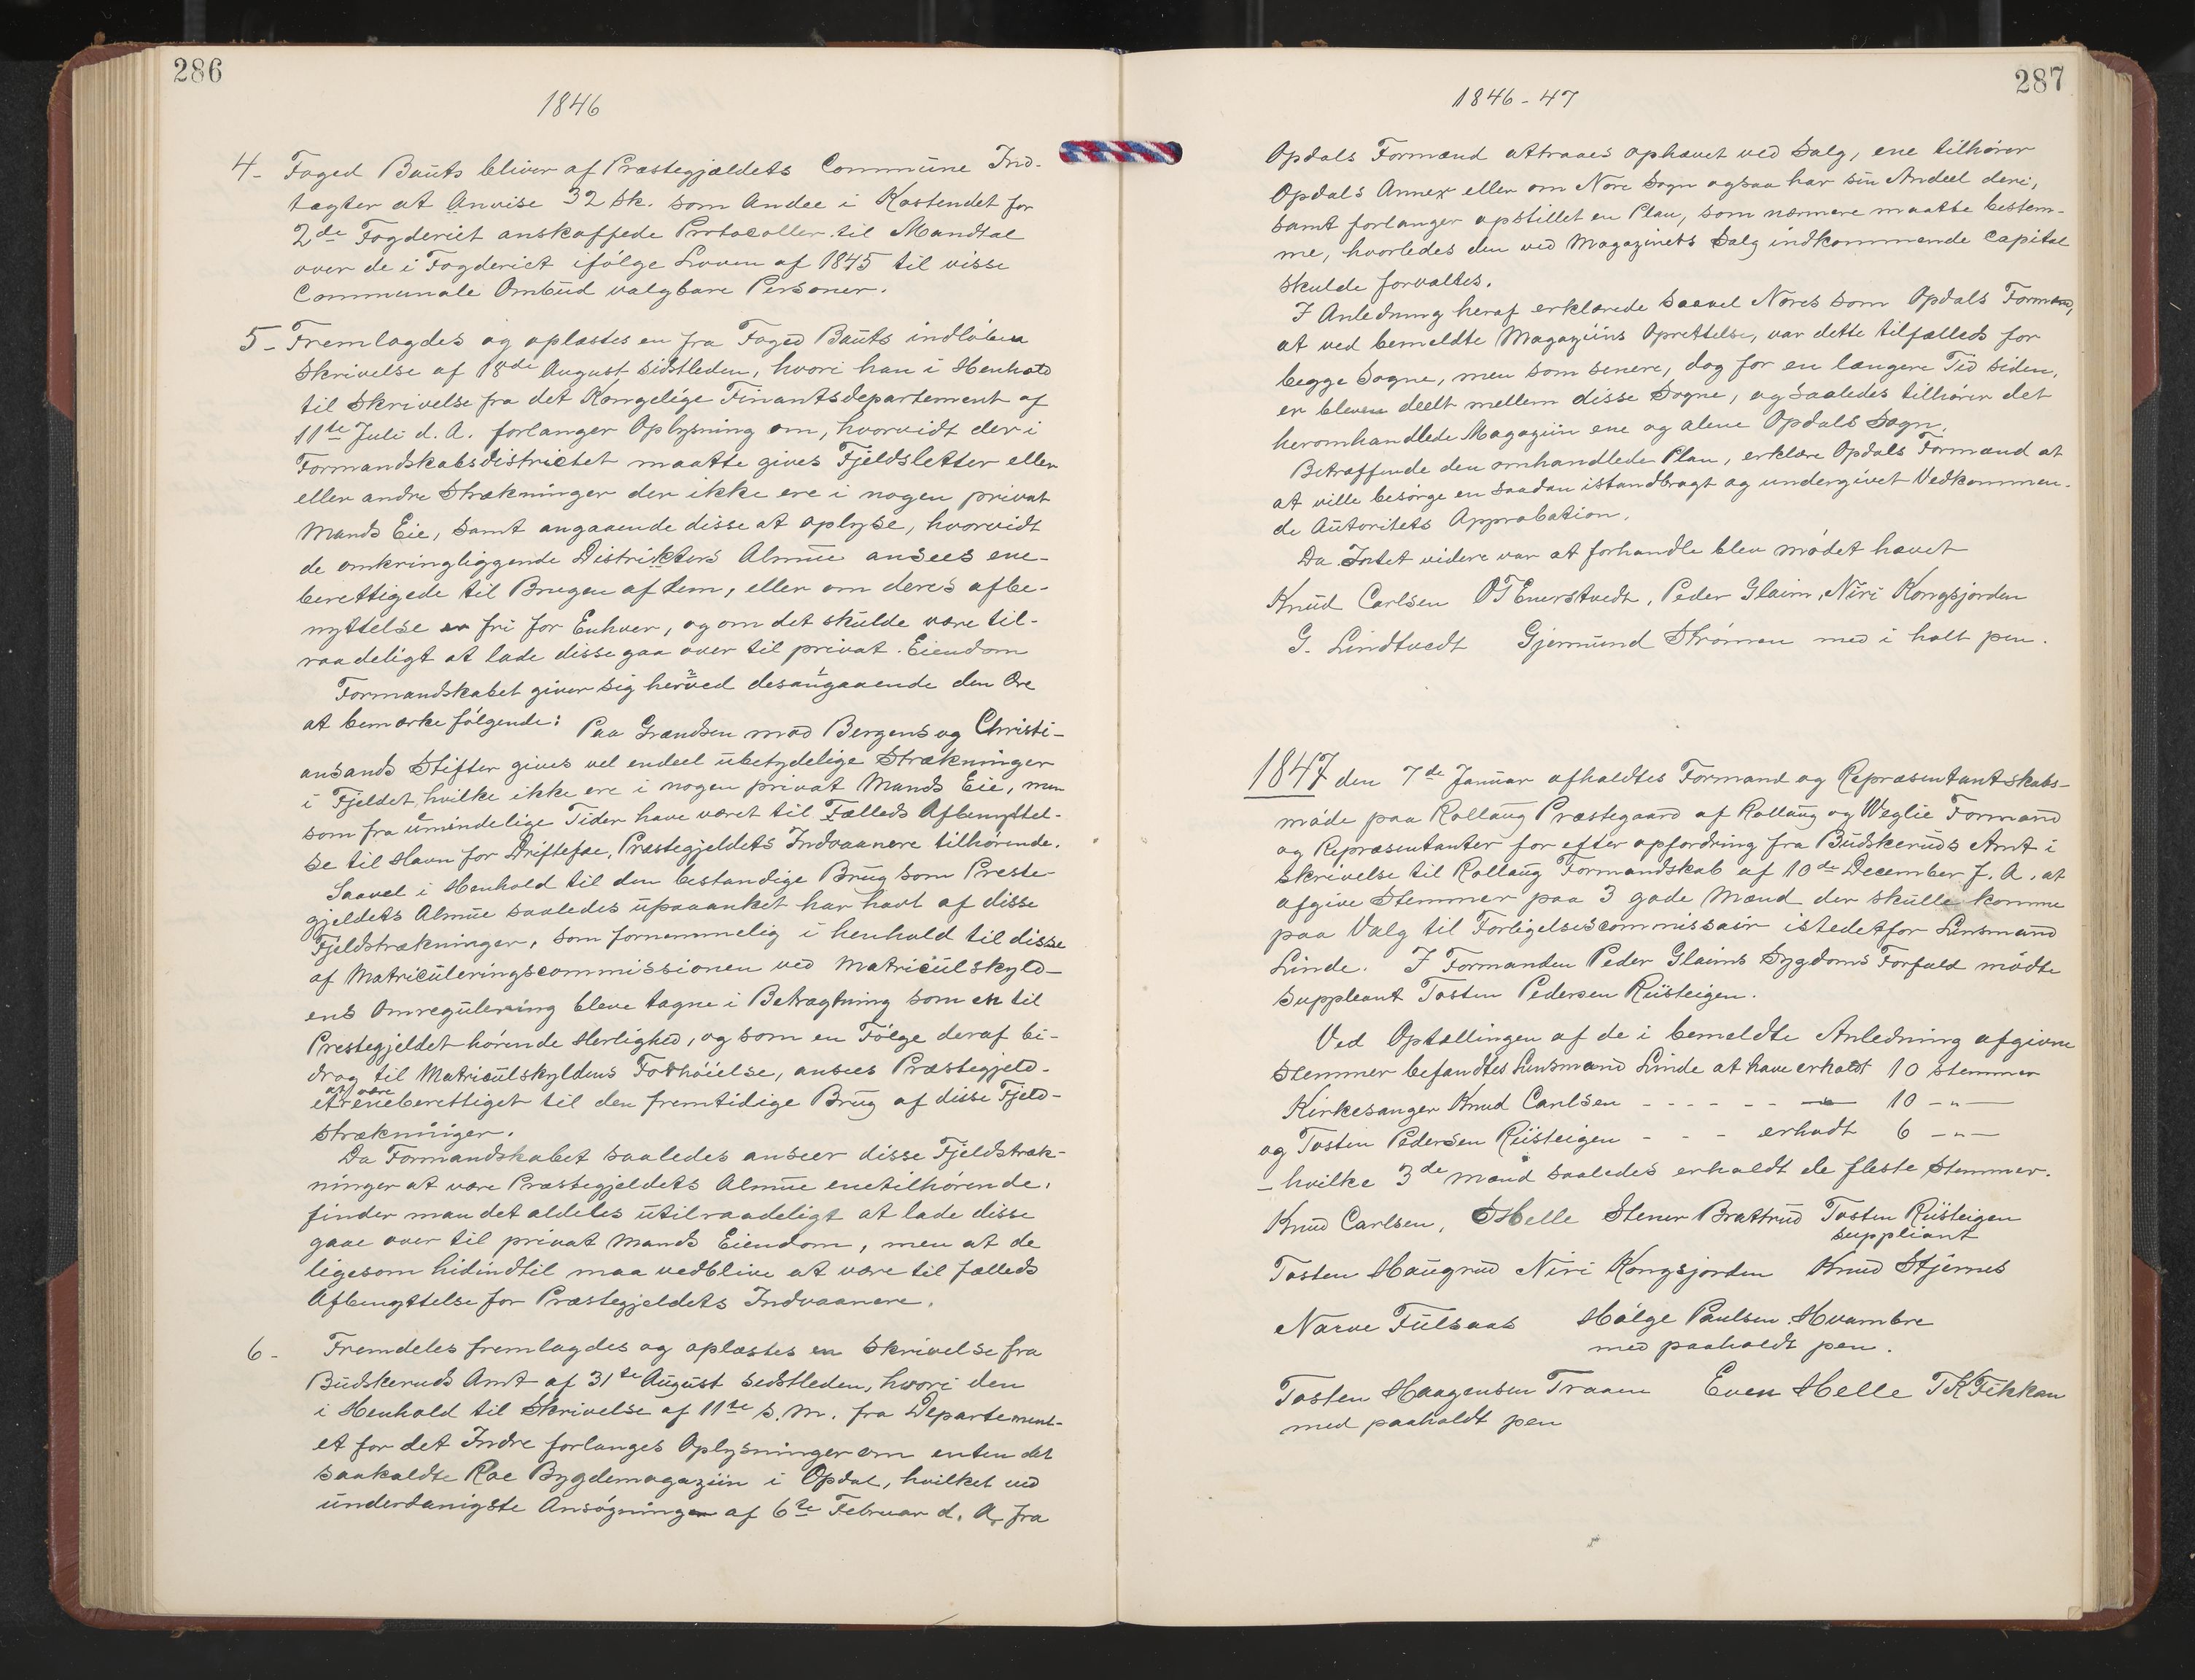 286
1846
4- Foged Bauts bliver af Præstegjældets Commune Ind-
tægter at Anvise 32 sk. som Andee i Kostendet for
2de Fogderiet anskaffede Protocoller til Mandtal
over de i Fogderiet ifølge Loven af 1845 til visse
Communale Ombud valgbare Personer.
5- Fremlagdes og oplæstes en fra Foged Bauts indløben
Skrivelse af 18de August sidstleden, hvori han i Henhold
til Skrivelse fra det Kongelige Finantsdepartement af
11te Juli d. A. forlanger Oplysning om, hvorvidt der i
Formandskabsdistrictet maatte gives Fjeldsletter eller
eller andre Strækninger der ikke ere i nogen privat
Mands Eie, samt angaaende disse at oplyse, hvorvidt
de omkringliggende Distrikters Almue ansees ene-
berettigede til Brugen af dem, eller om deres afbe-
nyttelse er fri for Enhver, og om det skulde være til-
raadeligt at lade disse gaa over til privat Eiendom
Formandskabet giver sig herved desangaaende den Ære
at bemærke følgende: Paa Grændsen mod Bergens og Christi-
ansands Stifter gives vel endeel ubetydelige Strækninger
i Fjeldet, hvilke ikke ere i nogen privat Mands Eie, men
som fra umindelige Tider have været til Fælleds Afbenyttel-
se til Havn for Driftefæ, Præstegjeldets Indvaanere tilhørende.
Saavel i Henhold til den bestandige Brug som Preste-
gjeldets Almue saaledes upaaanket har havt af disse
Fjeldstrækninger, som fornemmelig i henhold til disse
af Matriculeringscommissionen ved Matriculskyld-
ens Omregulering bleve tagne i Betragtning som en til
Prestegjeldet hørende Herlighed, og som en Følge deraf bi-
drog til Matriculskyldens Forhøielse, ansees Præstegjeld-
et at være eneberettiget til den fremtidige Brug af disse Fjeld-
strækninger.
Da Formandskabet saaledes anseer disse Fjeldstræk-
ninger at være Præstegjeldets Almue enetilhørende,
finder man det aldeles utilraadeligt at lade disse
gaae over til privat Mands Eiendom, men at de
ligesom hidindtil maa vedblive at være til fælleds
Afbenyttelse for Præstegjeldets Indvaanere.
6- Fremdeles fremlagdes og oplæstes en Skrivelse fra
Buskeruds Amt af 31te August sidstleden, hvori den
i Henhold til Skrivelse af 11te s. M. fra Departement-
et for det Indre forlanges Oplysninger om enten det
saakaldte Rae Bygdemagaziin i Opdal, hvilket ved
underdanigste Ansøgningen af 6te Februar d. A. fra
287
1846-47
Opdals Formænd attraaes ophævet ved Salg, ene tilhører
Opdals Annex eller om Nore Sogn ogsaa har sin Andeel deri,
samt forlanger opstillet en Plan, som nærmere maatte bestem-
me, hvorledes den ved Magazinets Salg indkommende Capital
skulde forvaltes.
I Anledning heraf erklærede saavel Nores som Opdals Formænd,
at ved bemeldte Magaziins Oprettelse, var dette tilfælleds for
begge Sogne, men som senere, dog for en længere Tid siden,
er bleven deelt mellem disse Sogne, og saaledes tilhører det
heromhandlede Magaziin ene og alene Opdals Sogn.
Betræffende den omhandlede Plan, erklære Opdals Formænd at
at ville besørge en saadan istandbragt og undergivet Vedkommen-
de Autoritets Approbation.
Da Intet videre var at forhandle blev mødet hævet
Knud Carlsen OT Enerstvedt, Peder Glaim, Niri Kongsjorden
G. Lindtvedt Gjermund Strømen med i holt pen.
1847 den 7de Januar afholdtes Formand og Repræsentantskabs-
møde paa Rollaug Præstegaard af Rollaug og Weglie Formænd
og Repræsentanter for efter opfordring fra Budskeruds Amt i
skrivelse til Rollaug Formandskab af 10de December f. A. at
afgive Stemmer paa 3 gode Mænd der skulle komme
paa Valg til Forligelsescommissair istedetfor Lensmand
Linde. I Formanden Peder Glaims Sygdoms Forfald mødte
Suppleant Tosten Pedersen Riisteigen.
Ved Optællingen af de i bemeldte Anledning afgivne
Stemmer befandtes Lensmand Linde at have erholdt 10 stemmer
Kirkesanger Knud Carlsen - - - - - - 10 -"-
og Tosten Pedersen Riisteigen - - - erholdt 6 -"-
- hvilke 3de mænd saaledes erholdt de fleste Stemmer.
Knud Carlsen, SHelle Stener Brattrud Tosten Riisteigen
suppliant
Tosten Haugrud Niri Kongsjorden Knud Stjernes
Narve Fulsaas Hålge Paulsen Hvambre
med paaholdt pen.
Tosten Haagensen Traaen Even Helle TKFikkan
med paaholdt pen